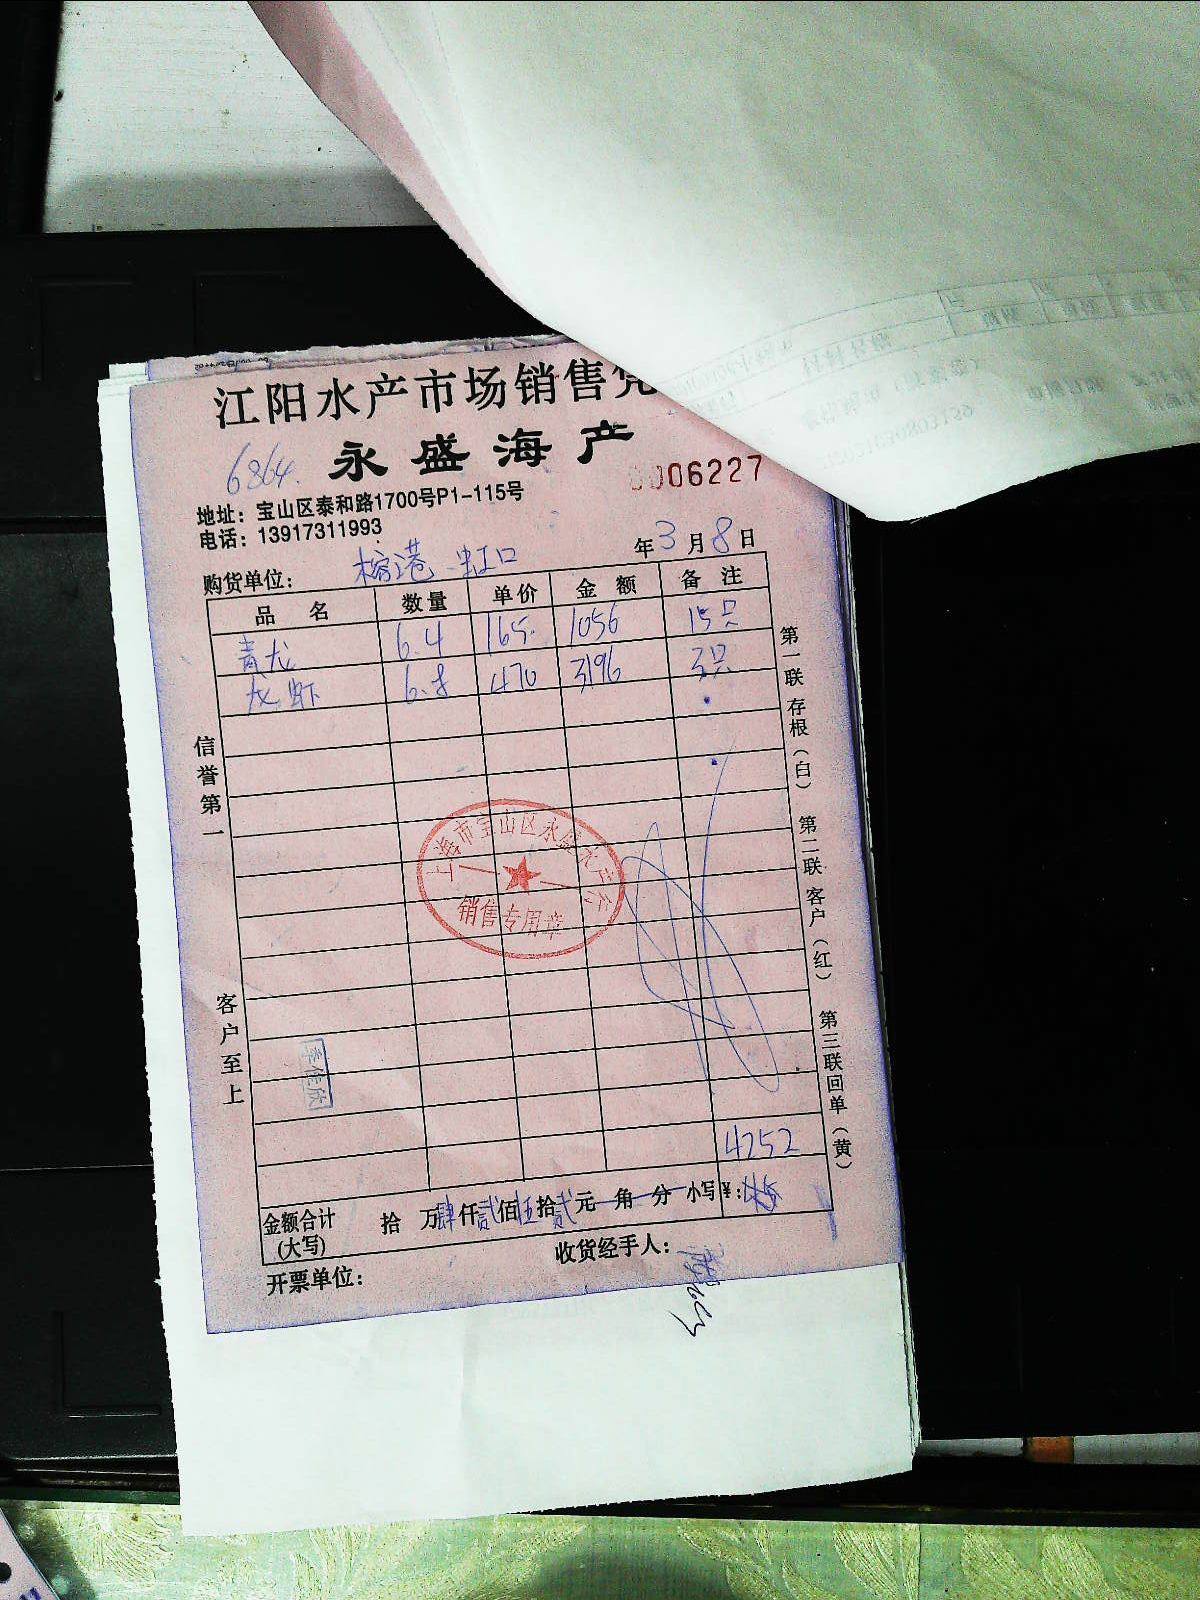 江阳水产市场销售凭
永盛海产
6864.
0006227
地址：宝山区泰和路1700号P1-115号
电话：13917311993
年3月8日
购货单位：榕港 虹口
品 名 数量 单价 金 额 备 注
青龙 6.4 165. 1056 15只
龙虾 6.8 470 3196 3只
信誉第一
客户至上
第一联 存根（白） 第二联 客户（红） 第三联 回单（黄）
上海市宝山区永盛水产行
销售专用章
李佳欣
4252
金额合计（大写） 拾 万肆仟贰佰伍拾贰元 角 分 小写¥：
收货经手人：
开票单位：